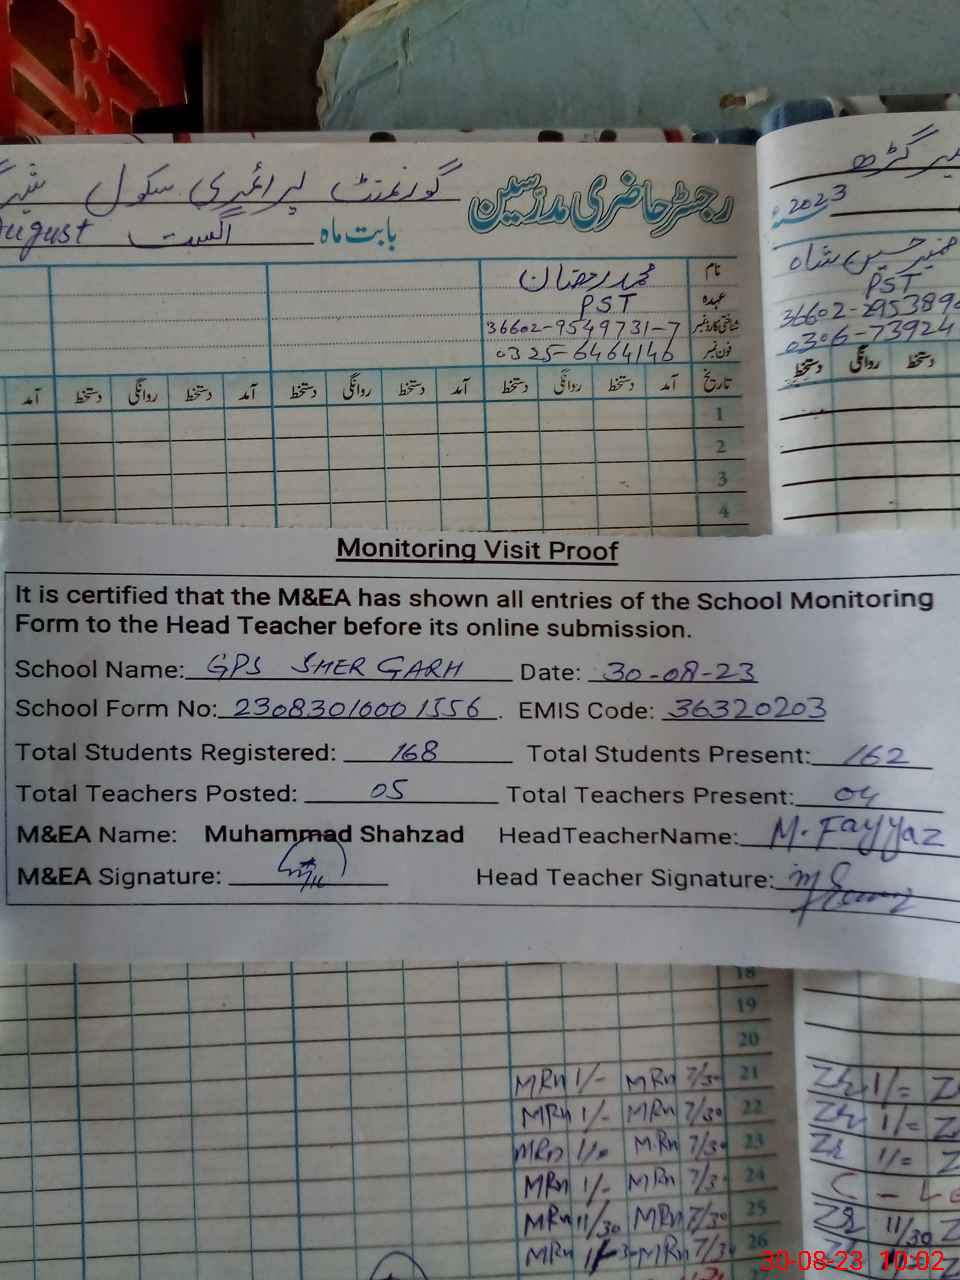 گورنمنٹ پرائمری سکول شیر گڑھ
رجسٹر حاضری مدرسین
بابت ماہ اگست August
2023
نام محمد رمضان
عہدہ PST
شناختی کارڈ نمبر 36602-9549731-7
فون نمبر 0325-6464146
منیر حسین شاہ
PST
36602-295389
0306-73924
تاریخ آمد دستخط روانگی دستخط آمد دستخط روانگی دستخط آمد دستخط روانگی دستخط آمد
دستخط روانگی دستخط
1
2
3
4
Monitoring Visit Proof
It is certified that the M&EA has shown all entries of the School Monitoring
Form to the Head Teacher before its online submission.
School Name: GPS SHER GARH Date: 30-08-23
School Form No: 23083010001556. EMIS Code: 36320203
Total Students Registered: 168 Total Students Present: 162
Total Teachers Posted: 05 Total Teachers Present: 04
M&EA Name: Muhammad Shahzad HeadTeacherName: M. Fayyaz
M&EA Signature: Head Teacher Signature:
18
19
20
MRn 1/- MRn 7/30 21
MRn 1/- MRn 7/30 22
MRn 1/- MRn 7/30 23
MRn 1/- MRn 7/30 24
MRn 11/30 MRn 7/30 25
MRn MRn 7/30 26
1/=
1/=
11/=
11/30
30-08-23 10:02